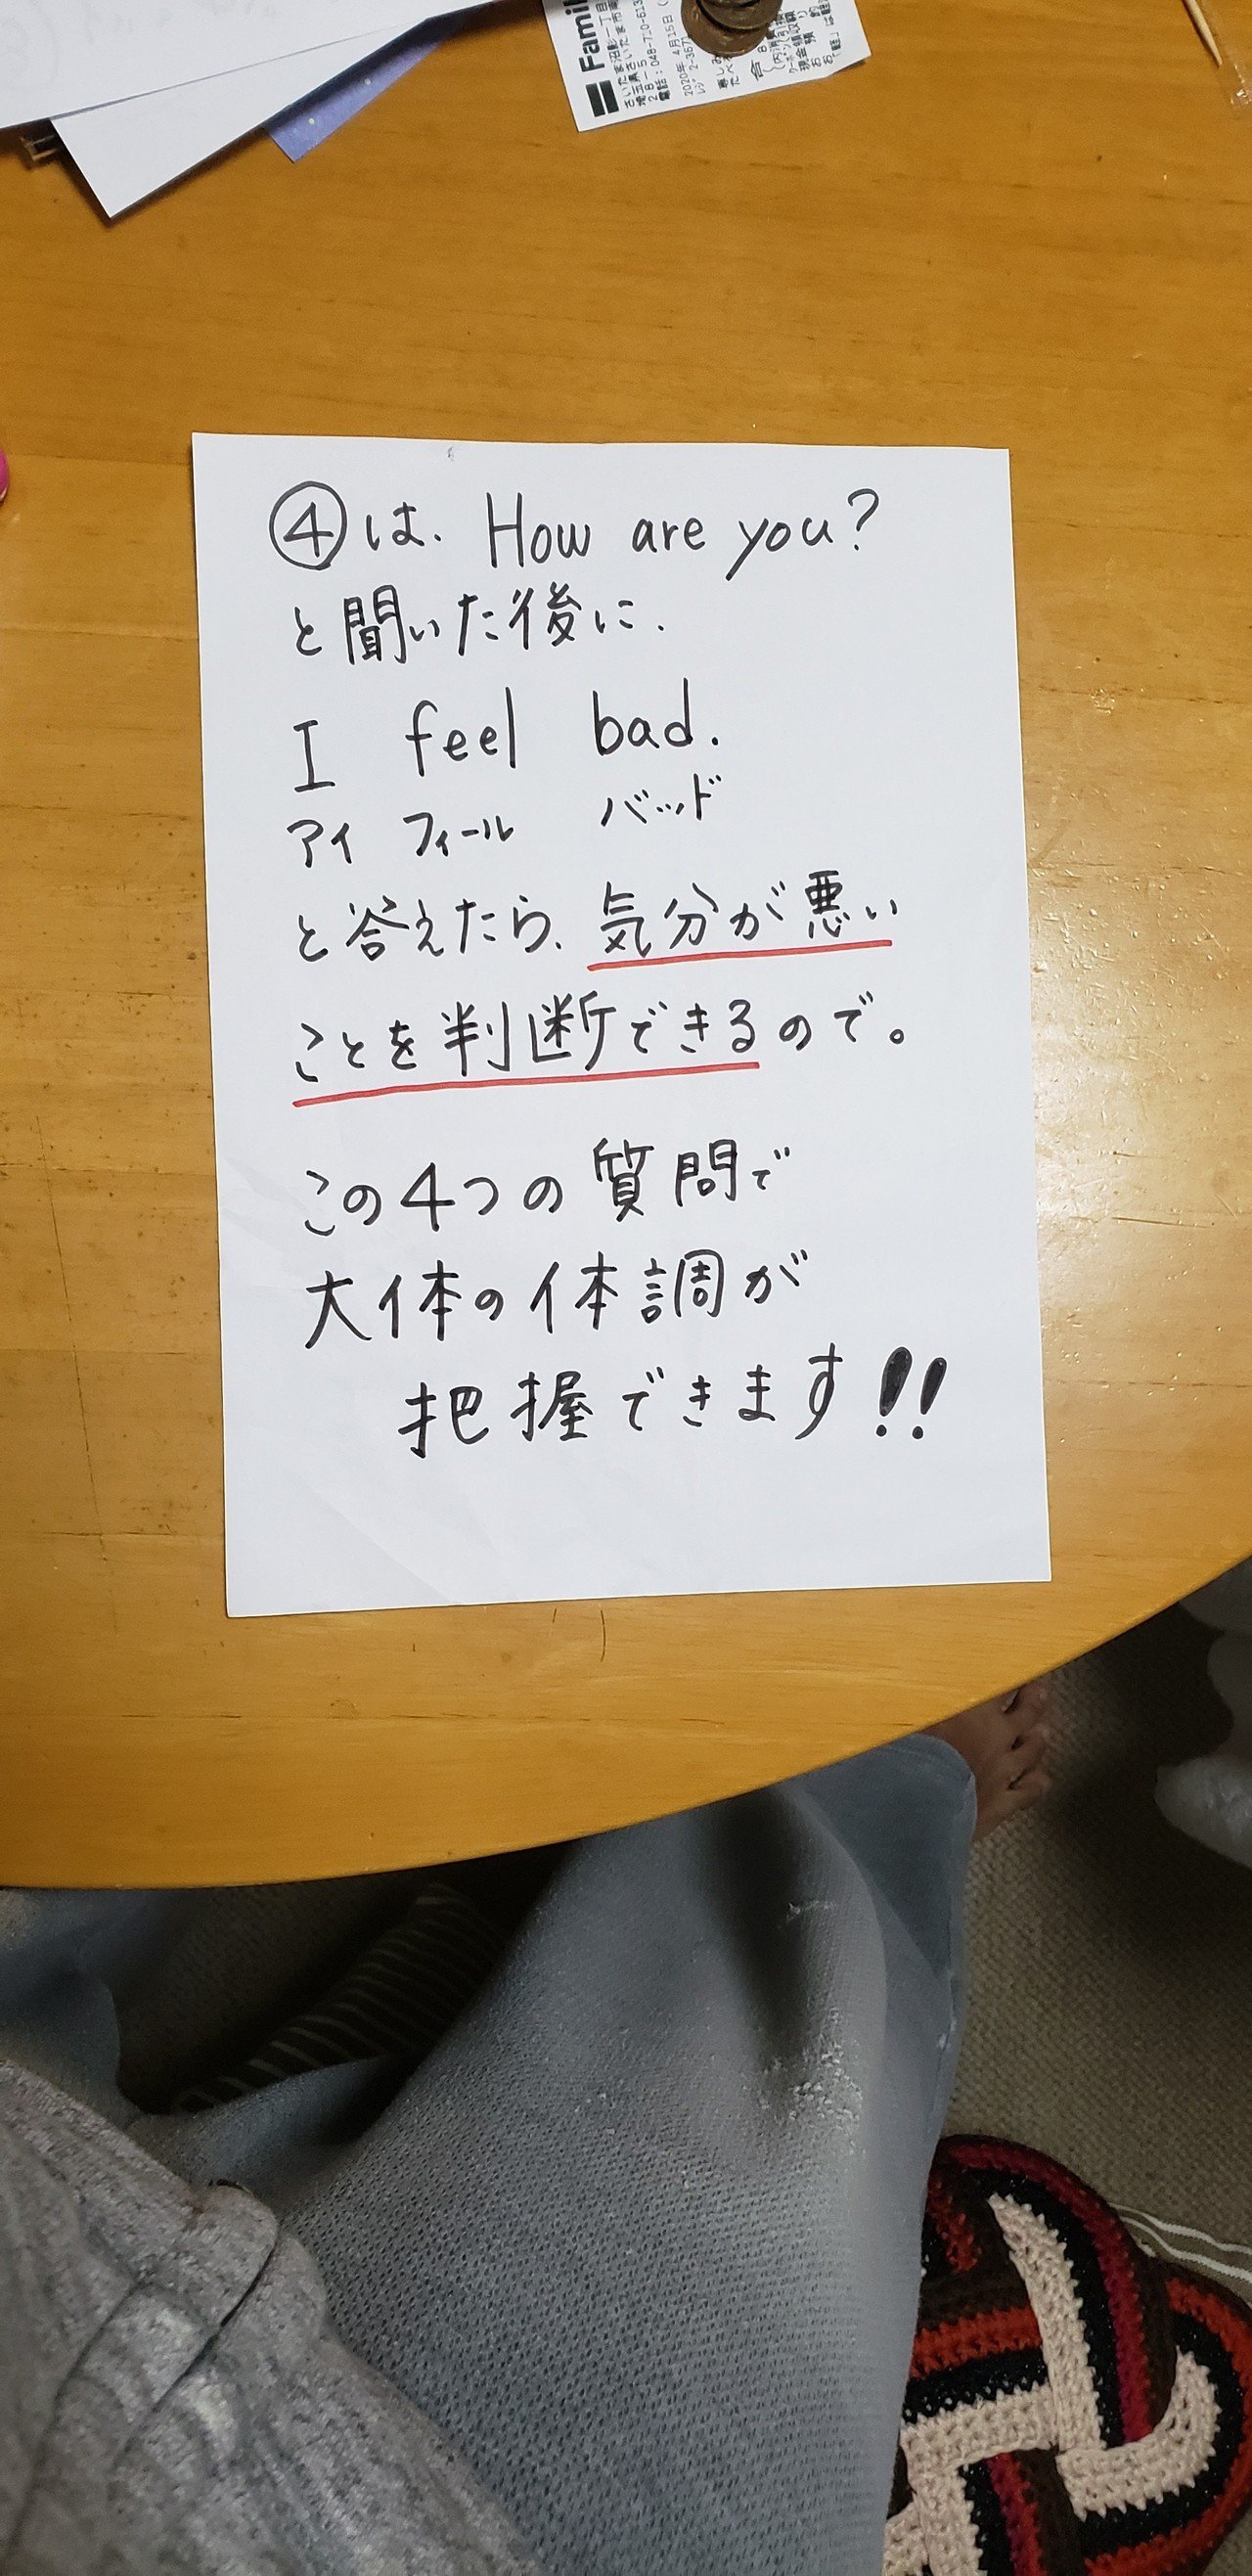 Famil
2020年 4月15日
④は、How are you?
と聞いた後に、
I feel bad.
アイ フィール バッド
と答えたら、気分が悪い
ことを判断できるので。
この4つの質問で
大体の体調が
把握できます!!